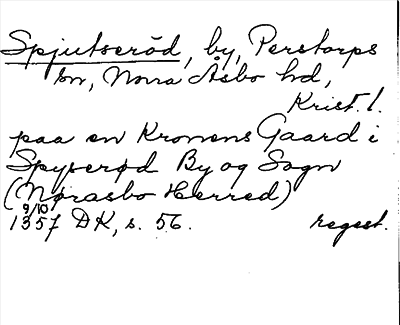 Spjutseröd, by, Perstorps
sn, Norra Åsbo hd,
Krist. l.
paa en Kronens Gaard i
Spyserød By og Sogn
(Nørasbo Herred)
9/10
1357 DK, s. 56. regest.